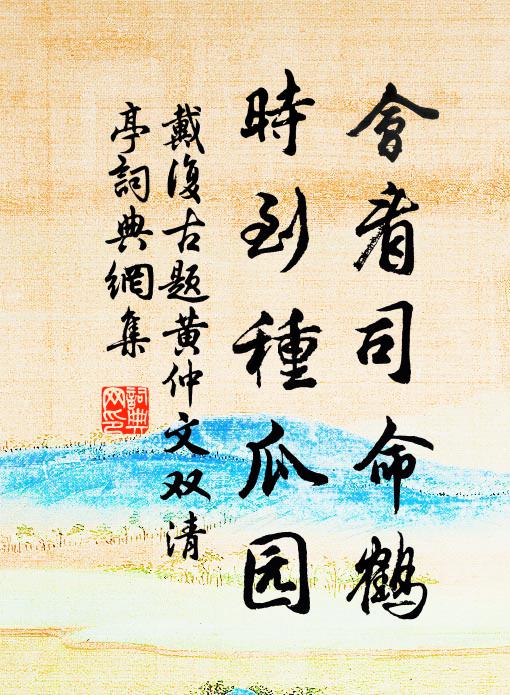 會看司命鶴
時到種瓜园
戴復古题黄仲文双清
亭詞典網集
詞典網印